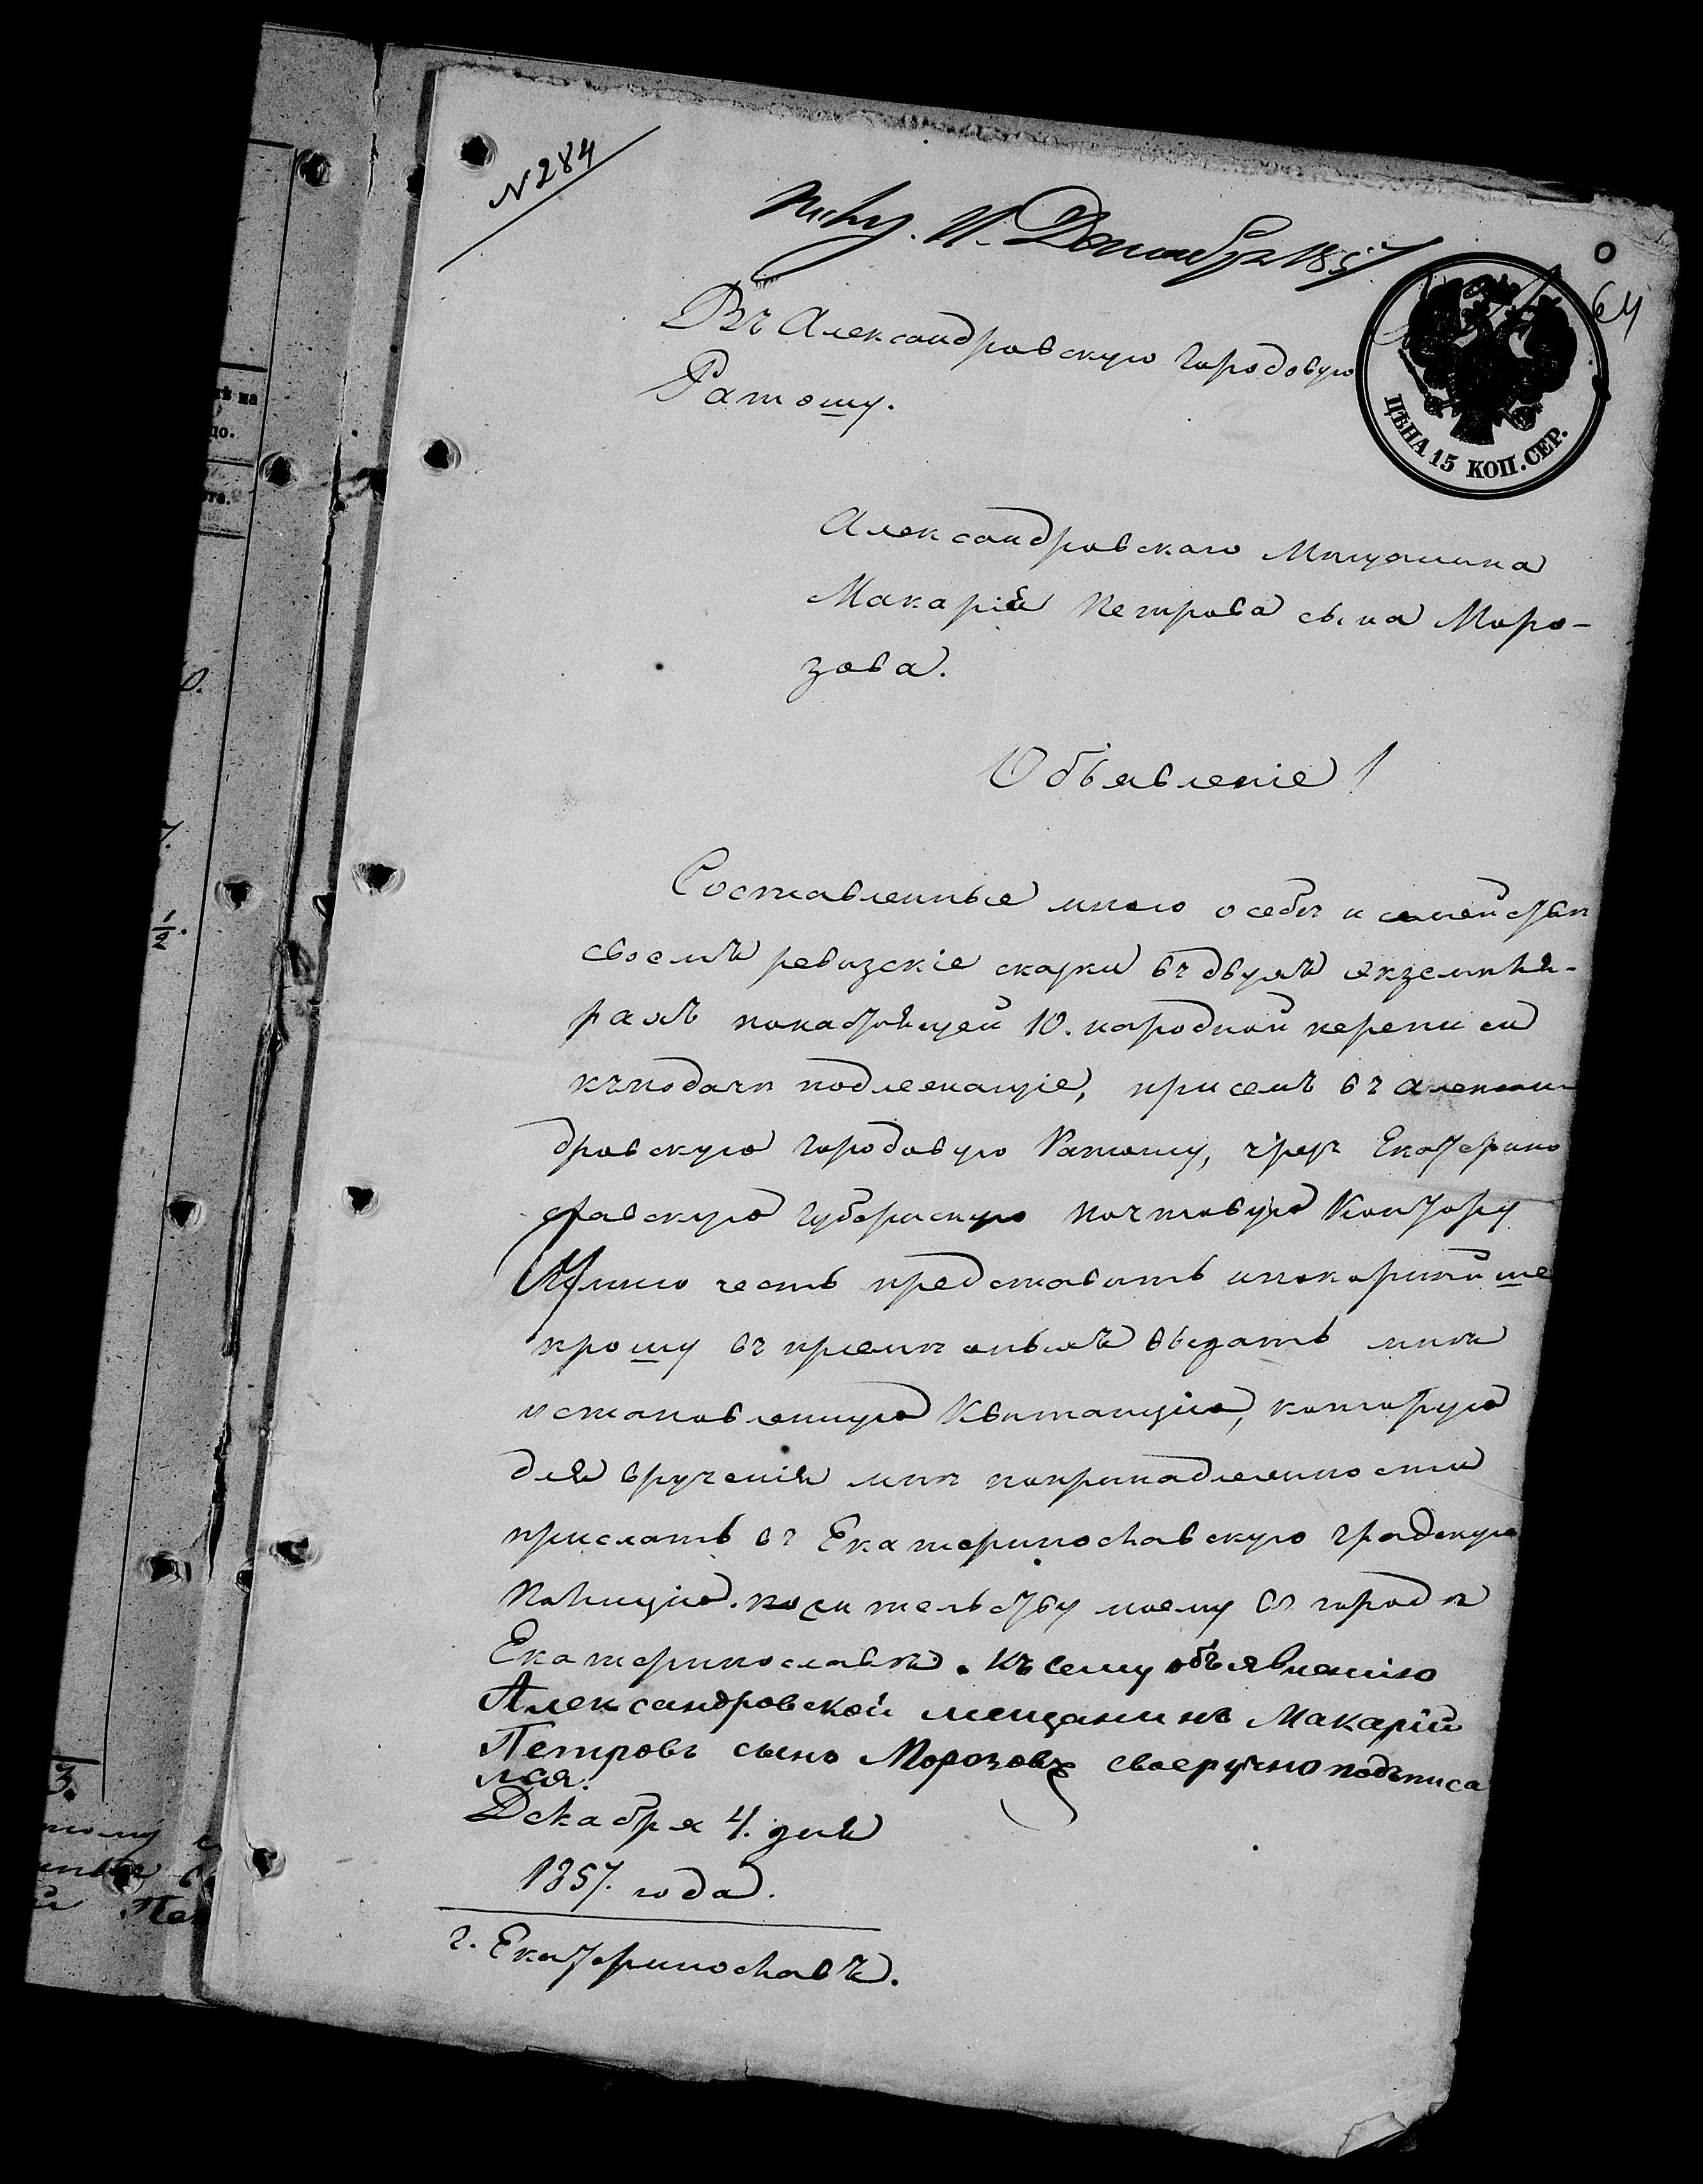 N 284
11. Декабря 1857
64
Въ Александровскую Городовую
Ратошу.
ЦѢНА 15 КОП. СЕР.
Александровскаго Мѣщанина
Макарія Петрова сына Моро-
зова.
Объявленіе!
Составленные мною о себѣ и семействѣ
своемъ ревизскіе скаски въ двухъ екземпля-
рахъ понастоящей 10. народной переписи
къ подачи подлежащіе, при семъ въ Алексан-
дровскую Городовую Ратошу, чрезъ Екатерино
славскую Губернскую Почтовую Контору
Имѣю честь представить ипокорнѣйше
прошу въ пріемѣ оныхъ выдать мнѣ
установленную Квитанцію, которую
для врученія мнѣ попринадлежности
прислать въ Екатеринославскую градскую
Полицію. пожительству моему въ городѣ
Екатеринославѣ. Къ сему объявленію
Александровской мещанинъ Макарій
Петровъ сынъ Морозовъ своеручно подъписа
лся.
Декабря 4. дня
1857. года.
г. Екатеринославъ.
тѣ на
до.
та.
1/2.
3.